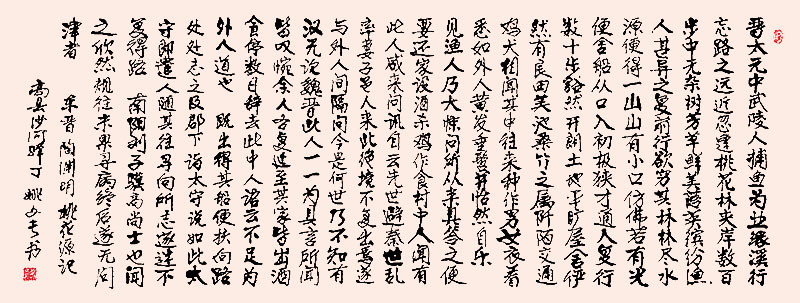 晋太元中武陵人捕鱼为业缘溪行
忘路之远近忽逢桃花林夹岸数百
步中无杂树芳草鲜美落英缤纷渔
人甚异之复前行欲穷其林林尽水
源便得一山山有小口仿佛若有光
便舍船从口入初极狭才通人复行
数十步豁然开朗土地平旷屋舍俨
然有良田美池桑竹之属阡陌交通
鸡犬相闻其中往来种作男女衣着
悉如外人黄发垂髫并怡然自乐
见渔人乃大惊问所从来具答之便
要还家设酒杀鸡作食村中人闻有
此人咸来问讯自云先世避秦世乱
率妻子邑人来此绝境不复出焉遂
与外人间隔问今是何世乃不知有
汉无论魏晋此人一一为具言所闻
皆叹惋余人各复延至其家皆出酒
食停数日辞去此中人语云不足为
外人道也 既出得其船便扶向路
处处志之及郡下诣太守说如此太
守即遣人随其往寻向所志遂迷不
复得路 南阳刘子骥高尚士也闻
之欣然规往未果寻病终后遂无问
津者 东晋陶渊明 桃花源记
高县沙河驿丁 姚文长书